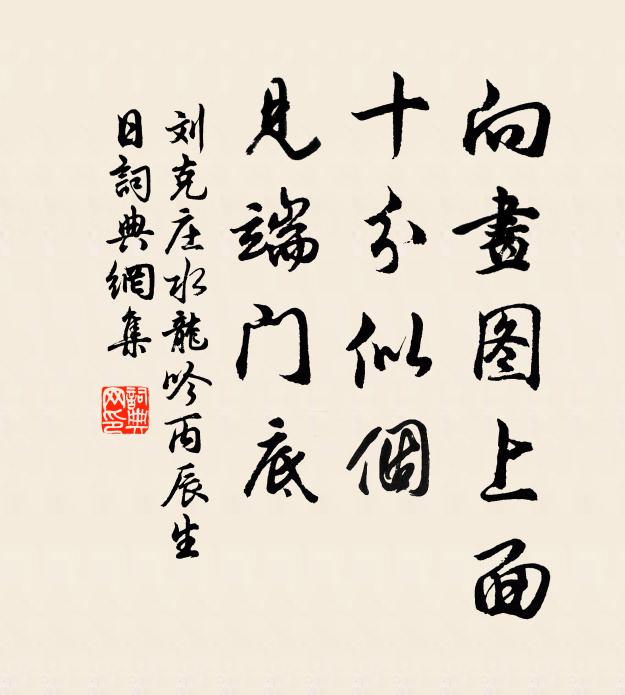 向畫图上面
十分似個
見端门底
刘克庄水龍吟丙辰生
日詞典網集
詞典
网印